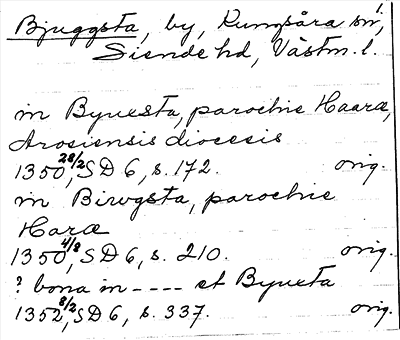 Bjuggsta, by, Kungsåra sn, 1.
Siende hd, Västm. l.
in Byuxsta, parochie Haaræ,
Arosiensis diocesis
1350 28/2, SD 6, s. 172. orig.
in Biwgsta, parochie
Haræ
1350 4/8, SD 6, s. 210. orig.
? bona in ---- et Byuxta
1352 8/2, SD 6, s. 337. orig.